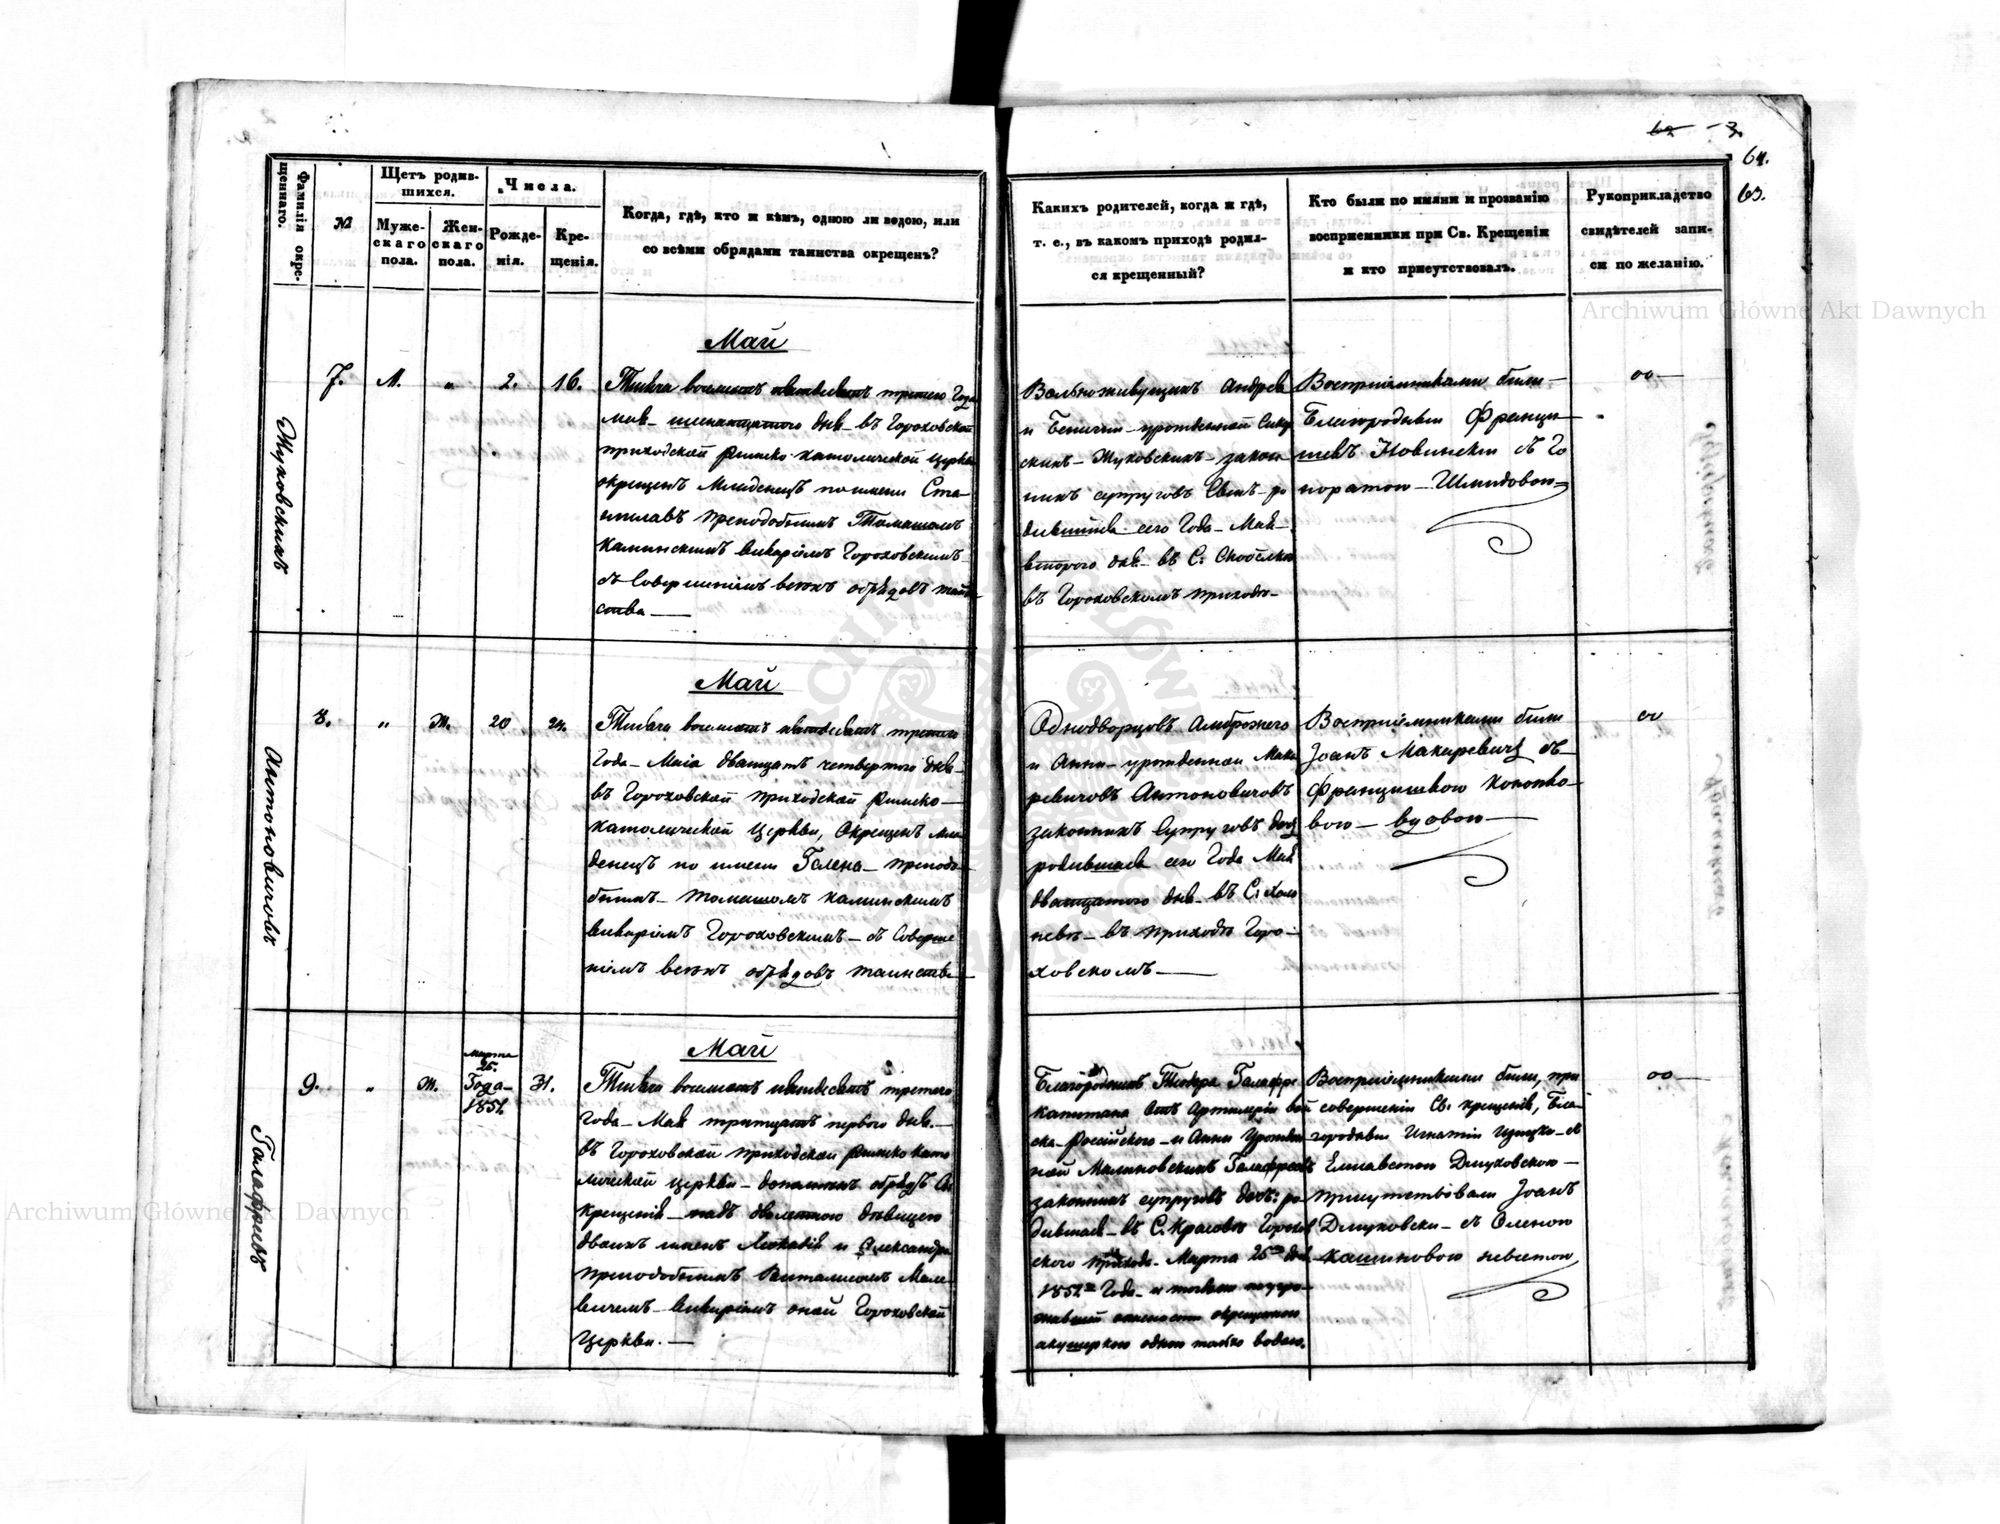 62 3.
64.
63.
Фамилія окре-
щеннаго.
№
Щетъ родив-
шихся.
Муже-
скаго
пола.
Жен-
скаго
пола.
Числа.
Рожде-
нія.
Кре-
щенія.
Когда, гдѣ, кто и кѣмъ, одною ли водою, или
со всѣми обрядами таинства окрещенъ?
Какихъ родителей, когда и гдѣ,
т. е., въ какомъ приходѣ родил-
ся крещенный?
Кто были по имяни и прозванію
воспріемники при Св. Крещеніи
и кто присутствовалъ.
Рукоприкладство
свидѣтелей запи-
си по желанію.
Archiwum Główne Akt Dawnych
Жуковскихъ
7.
М.
"
2.
16.
Май
Тысяча восемсотъ пятдесятъ третего Года
Мая шеснатцатого дня въ Гороховской
приходской римско католической церкви
окрещенъ Младенецъ по имени Ста-
ниславъ преподобнымъ Томашомъ
Каминскимъ викаріемъ Гороховскимъ
съ Совершеніемъ всѣхъ обрядовъ таин-
ства
Вольноживущихъ Андрея
и Бенигни урожденной
Жуковскихъ закон-
ныхъ супруговъ Сынъ ро
дившійся сего Года Мая
второго дня въ С.
въ Гороховскомъ приходѣ
Воспріемниками были
Благородный Франци-
шекъ Новински съ Го
норатою Шмидовою
Антоновичовъ
8.
"
Ж.
20
24.
Май
Тысяча восемсотъ пятдесятъ третего
Года Маія дватцатъ четвертого дня
въ Гороховской приходской римско
католической Церкви, Окрещенъ Мла
денецъ по имени Галена преподо
бнымъ Томашомъ Каминскимъ
викаріемъ Гороховскимъ съ Соверше
ніемъ всѣхъ обрядовъ таинства
Однодворцовъ Амброжего
и Анни урожденной Мака
ревичовъ Антоновичовъ
законныхъ Супруговъ дочь
родившаяся сего Года Мая
дватцатого дня въ С. Холо
невѣ въ приходѣ Горо-
ховскомъ
Воспріемниками были
Іоанъ Макаревичъ съ
Францишкою Конопко-
вою вдовою
Галафреевъ
9.
"
Ж.
Марта
25.
Года
1851.
31.
Май
Тысяча восемсотъ пятдесятъ третего
года Мая тритцатъ первого дня
въ Гороховской приходской римско като
лической церкви дополненъ обрядъ Св.
Крещенія надъ дволетною дѣвицею
двоихъ именъ Леокадія и Александра
преподобнымъ Виталисомъ Мале
вичемъ викаріемъ оной Гороховской
Церкви.
Благородныхъ Теодора Галафре
капитана Отъ Артилеріи вой
ска Россійского и Анни Урожден
ной Малиновскихъ Галафреевъ
законныхъ супруговъ дочь: ро
дившаяся въ С. Красовѣ Горохов
ского прихода Марта 25го дня
1851го Года и только по угро-
жавшей опасности окрещеною
акушеркою одною только водою.
Воспріемниками были, при
совершеніи Св. крещенія, Бла-
городный Игнатій съ
Елисаветою Длуховскою
присутствовали Іоанъ
Длуховски съ Еленою
Кашиновою невестою
Archiwum Główne Akt Dawnych